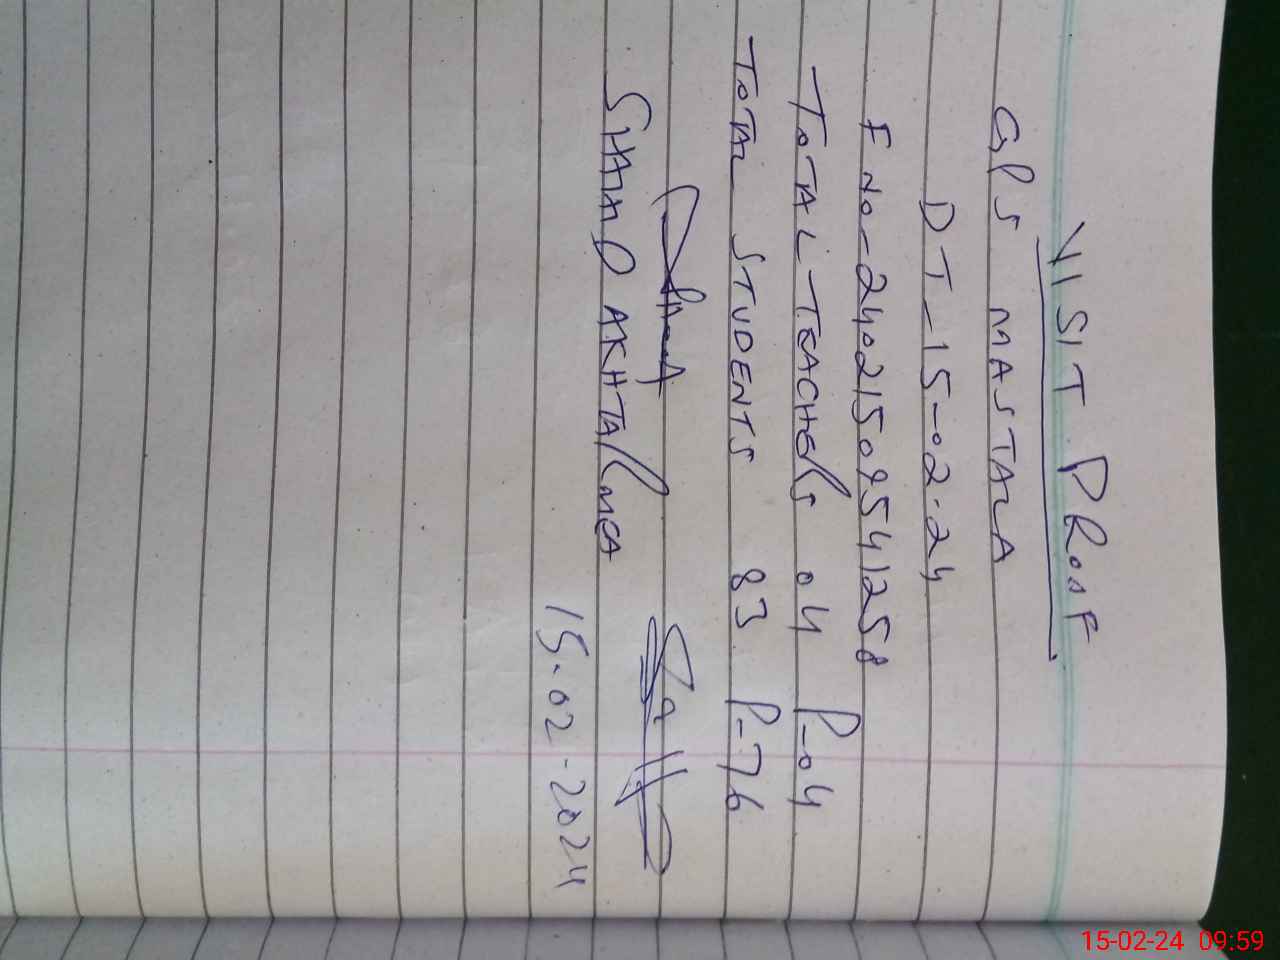 VISIT PROOF
GPS MASTALA
DT-15-02-24
F NO-24021509541258
TOTAL TEACHERS 04 P-04
TOTAL STUDENTS 83 P-76
AKHTAR MEA
15.02-2024
15-02-24 09:59